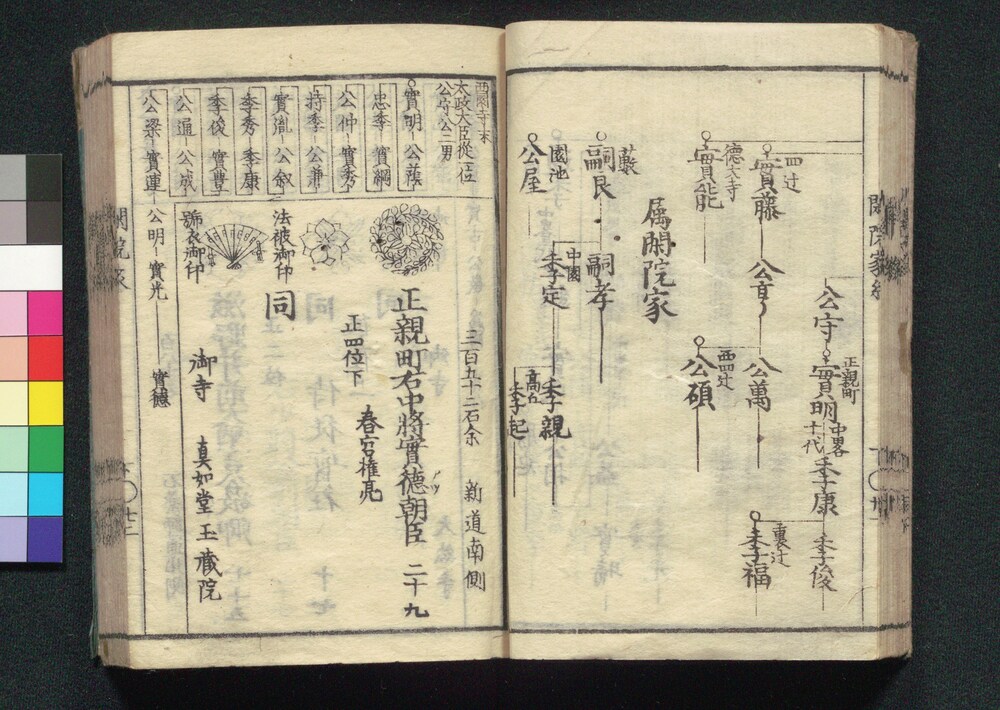 公守
正親町
實明
中畧
十代
季康
季俊
裏辻
季福
四辻
實藤
公萬
德大寺
實能
西四辻
公碩
属閑院家
藪
嗣良
嗣孝
中園
季定
季親
高丘
季起
園池
公屋
西園寺末
太政大臣從一位
公守公二男
實明
公蔭
忠季
實綱
公仲
實秀
持季
公兼
實胤
公叙
季秀
季康
季俊
實豊
公通
公成
公梁
實連
公明
實光
實德
三百五十二石余
新道南側
正親町右中將實德朝臣
二十九
正四位下
春宮權亮
同
法被御印
號衣御印
御寺
真如堂玉蔵院